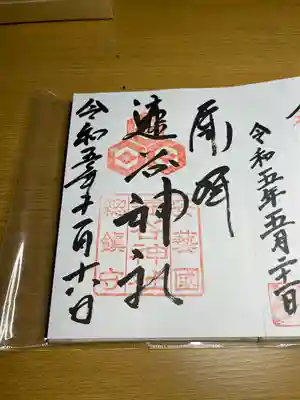 奉拝
速谷神社
令和五年十一月十六日
安藝國
速谷神社
総鎮守
令和五年五月二十一日